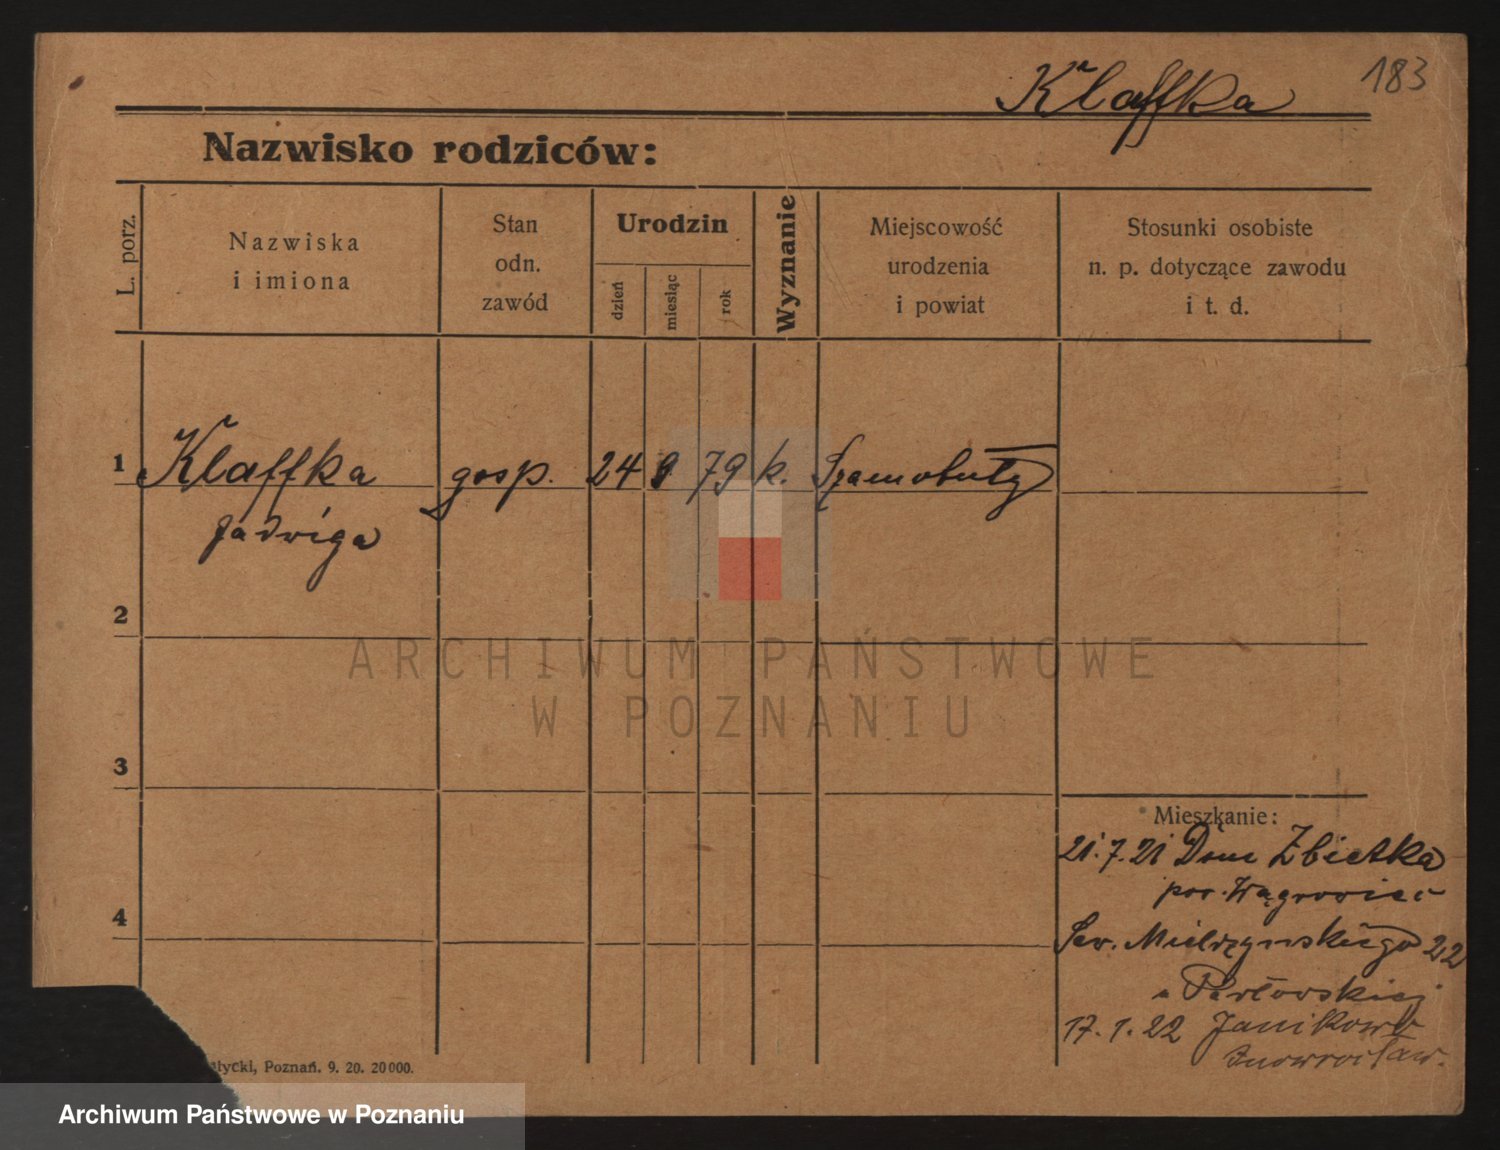 183
Klaffka
Nazwisko rodziców:
L. porz.
Nazwiska
i imiona
Stan
odn.
zawód
Urodzin
dzień
miesiąc
rok
Wyznanie
Miejscowość
urodzenia
i powiat
Stosunki osobiste
n. p. dotyczące zawodu
i t. d.
1 Klaffka gosp. 24 9 79 k. Szamotuły
Jadwiga
2
3
4
Mieszkanie:
21.7.21 Dom. Zbietka
pow. Wągrowiec
Sew. Mielżyńskiego 22
u Pawłowskiej
17.1.22 Janikowo
Inowrocław.
ałycki, Poznań. 9. 20. 20000.
ARCHIWUM PAŃSTWOWE
W POZNANIU
Archiwum Państwowe w Poznaniu